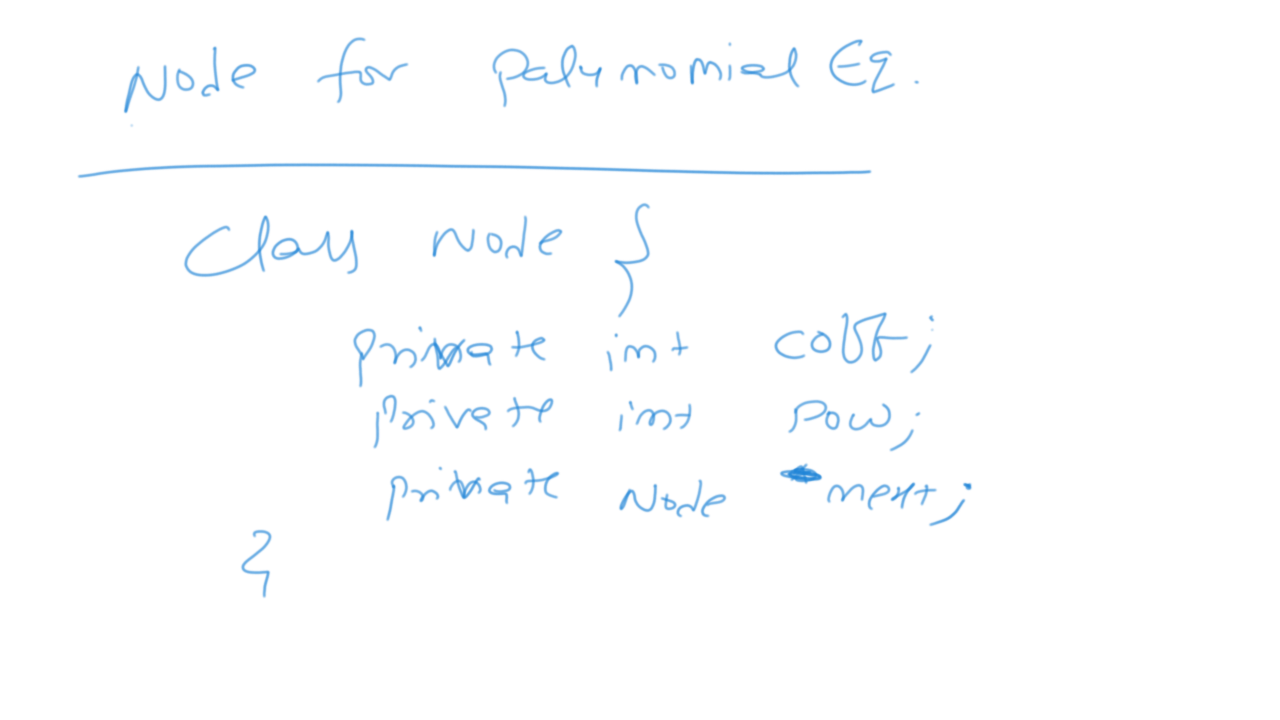 Node for Polynomial Eq.
Class Node {
private int coeff;
private int pow;
private Node next;
}